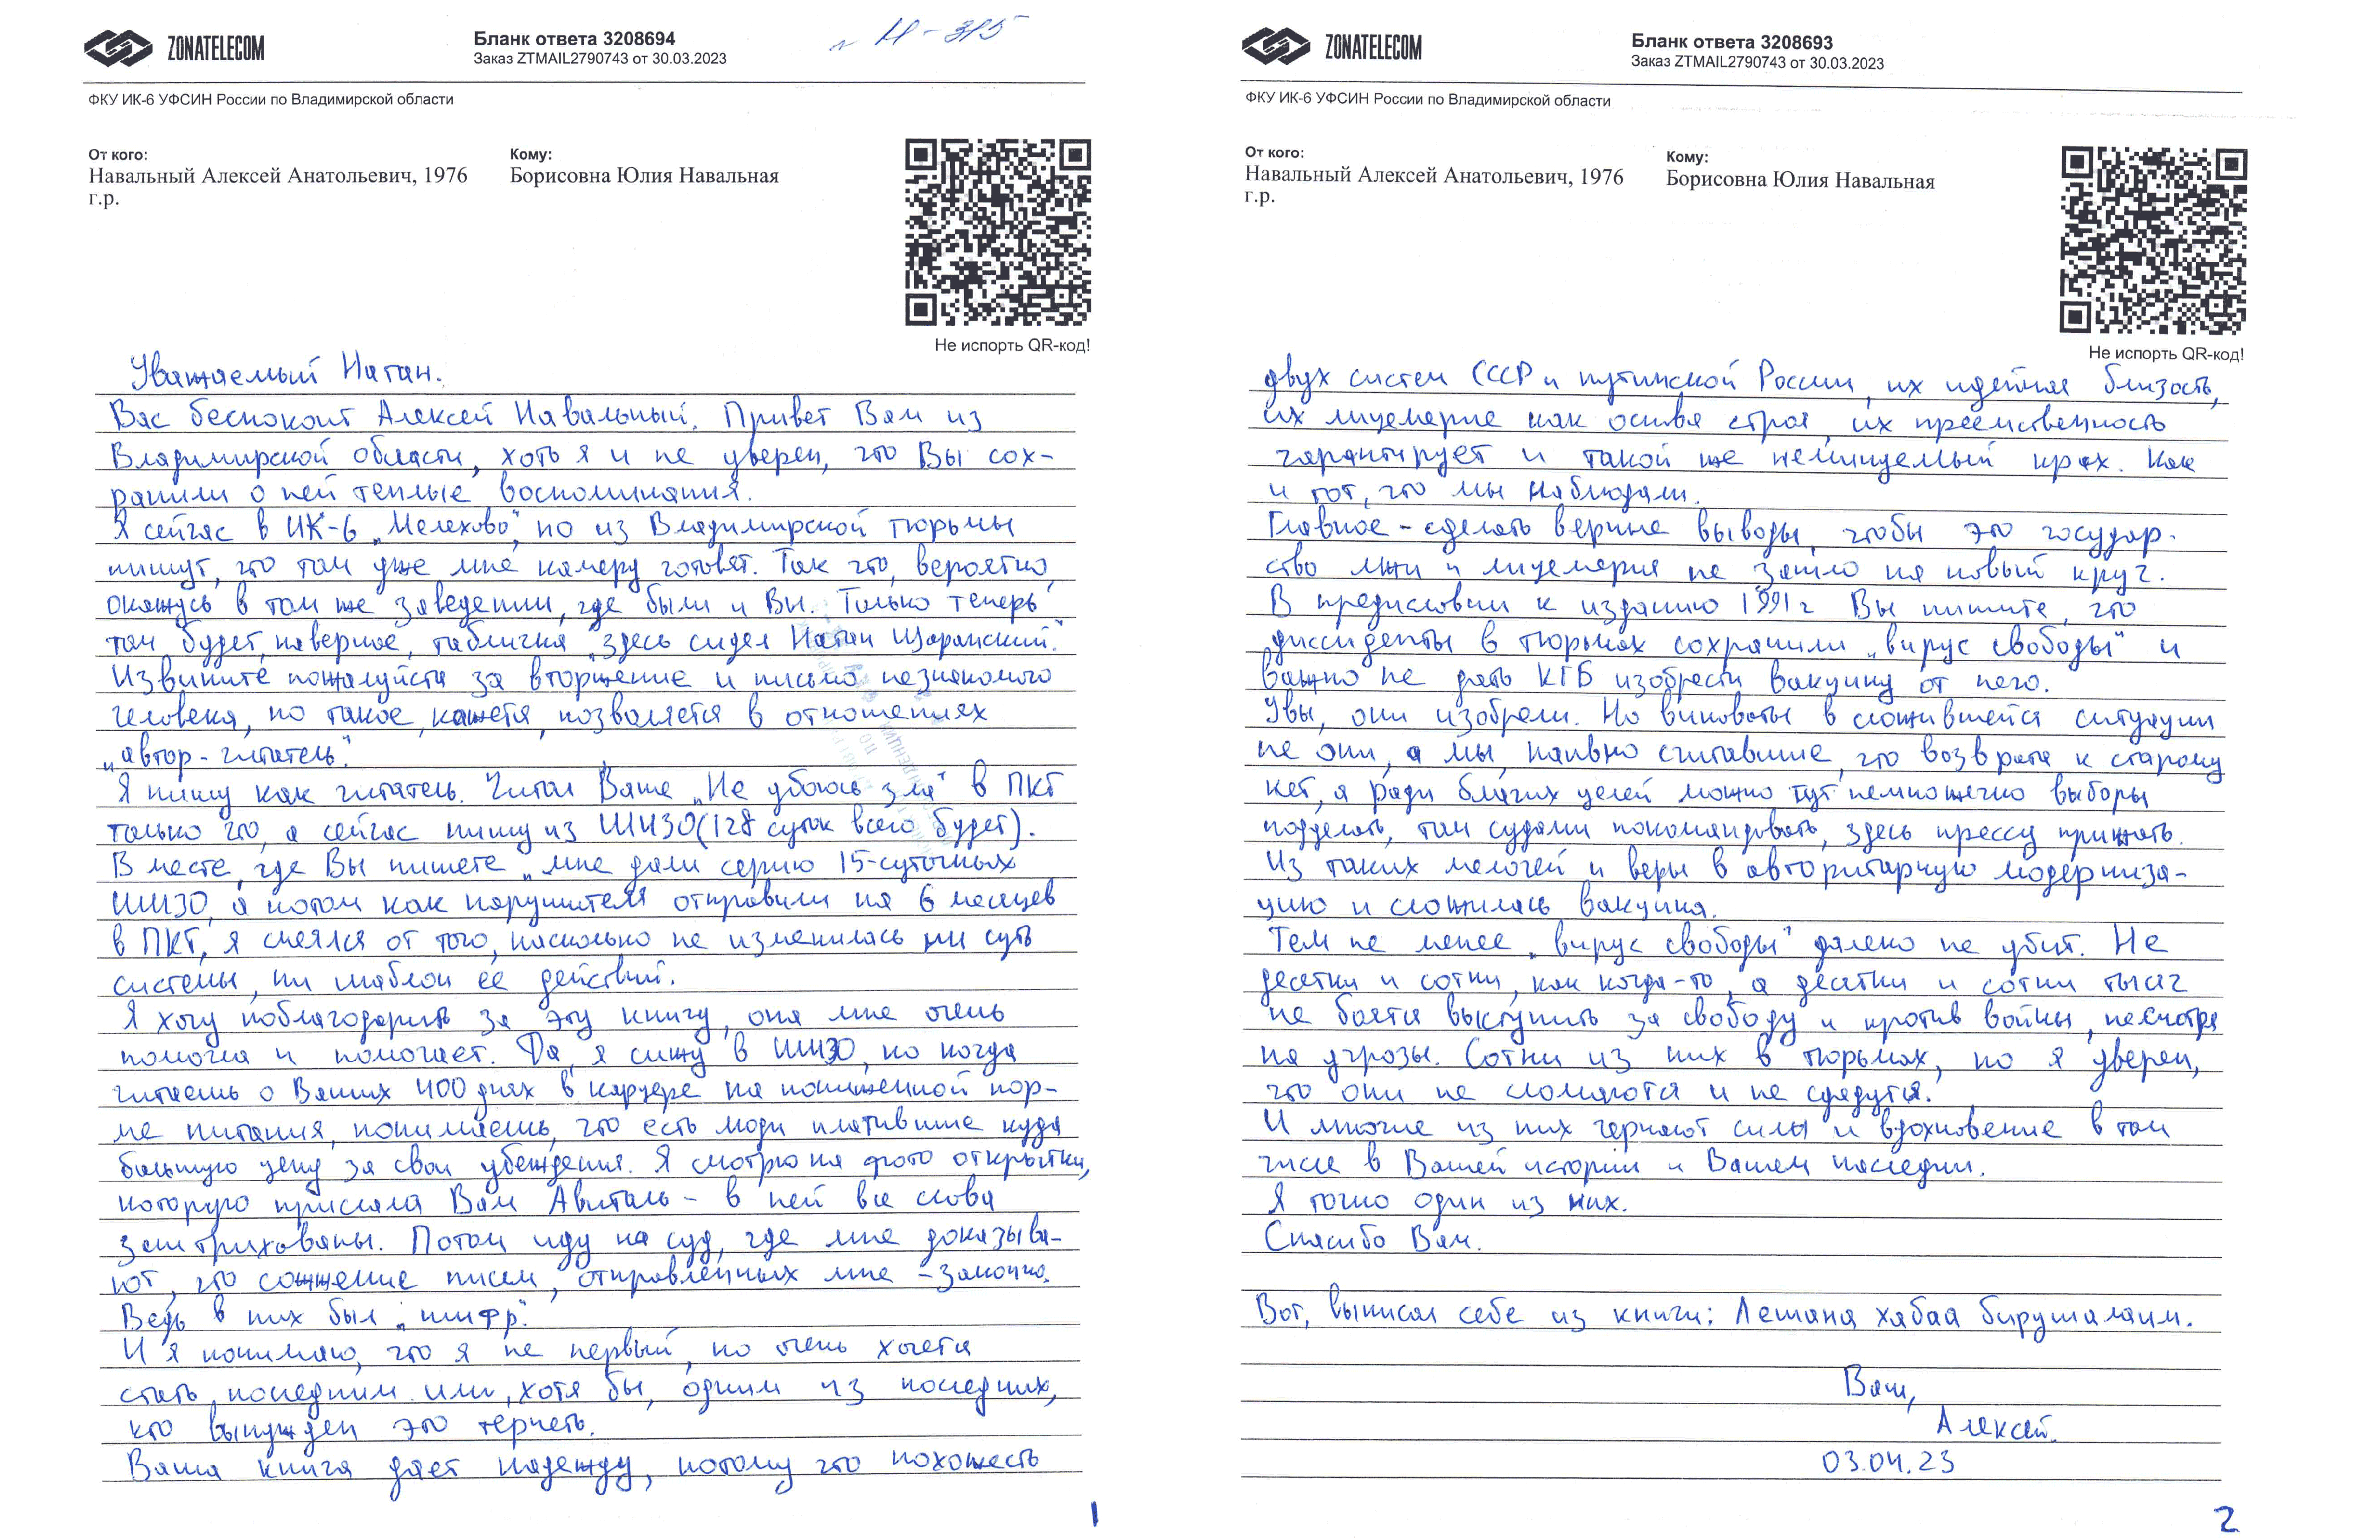 ZONATELECOM
Бланк ответа 3208694
Заказ ZTMAIL2790743 от 30.03.2023
ФКУ ИК-6 УФСИН России по Владимирской области
От кого:
Навальный Алексей Анатольевич, 1976
г.р.
Кому:
Борисовна Юлия Навальная
Не испорть QR-код!
Уважаемый Натан.
Вас беспокоит Алексей Навальный. Привет Вам из
Владимирской области, хоть я и не уверен, что Вы сох-
ранили о ней теплые воспоминания.
Я сейчас в ИК-6 „Мелехово", но из Владимирской тюрьмы
пишут, что там уже мне камеру готовят. Так что, вероятно,
окажусь в том же заведении, где были и Вы. Только теперь
там будет, наверное, табличка „здесь сидел Натан Щаранский."
Извините пожалуйста за вторжение и письмо незнакомого
человека, но такое, кажется, позволяется в отношениях
„автор-читатель".
Я пишу как читатель. Читал Ваше „Не убоюсь зла" в ПКТ
только что, а сейчас пишу из ШИЗО (128 суток всего будет).
В месте, где Вы пишете „мне дали серию 15-суточных
ШИЗО, а потом как нарушителя отправили на 6 месяцев
в ПКТ", я смеялся от того, насколько не изменилась ни суть
системы, ни шаблон её действий.
Я хочу поблагодарить за эту книгу, она мне очень
помогла и помогает. Да, я сижу в ШИЗО, но когда
читаешь о Ваших 400 днях в карцере на пониженной нор-
ме питания, понимаешь, что есть люди платившие куда
большую цену за свои убеждения. Я смотрю на фото открытки,
которую прислала Вам Авиталь - в ней все слова
заштрихованы. Потом иду на суд, где мне доказыва-
ют, что сожжение писем, отправленных мне - законно.
Ведь в них был „шифр".
И я понимаю, что я не первый, но очень хочется
стать последним или, хотя бы, одним из последних,
кто вынужден это терпеть.
Ваша книга дает надежду, потому что похожесть
1
ZONATELECOM
Бланк ответа 3208693
Заказ ZTMAIL2790743 от 30.03.2023
ФКУ ИК-6 УФСИН России по Владимирской области
От кого:
Навальный Алексей Анатольевич, 1976
г.р.
Кому:
Борисовна Юлия Навальная
Не испорть QR-код!
двух систем СССР и путинской России, их идейная близость,
их лицемерие как основа строя, их преемственность
гарантирует и такой же неминуемый крах. Как
и тот, что мы наблюдали.
Главное - сделать верные выводы, чтобы это государ-
ство лжи и лицемерия не зашло на новый круг.
В предисловии к изданию 1991г Вы пишите, что
диссиденты в тюрьмах сохранили „вирус свободы" и
важно не дать КГБ изобрести вакцину от него.
Увы, они изобрели. Но виноваты в сложившейся ситуации
не они, а мы, наивно считавшие, что возврата к старому
нет, а ради благих целей можно тут немножечко выборы
подделать, там судами покомандовать, здесь прессу прижать.
Из таких мелочей и веры в авторитарную модерниза-
цию и сложилась вакцина.
Тем не менее „вирус свободы" далеко не убит. Не
десятки и сотни, как когда-то, а десятки и сотни тысяч
не боятся выступить за свободу и против войны, несмотря
на угрозы. Сотни из них в тюрьмах, но я уверен,
что они не сломаются и не сдадутся.
И многие из них черпают силы и вдохновение в том
числе в Вашей истории и Вашем наследии.
Я точно один из них.
Спасибо Вам.
Вот, выписал себе из книги: Лешана хабаа бирушалаим.
Ваш,
Алексей.
03.04.23
2